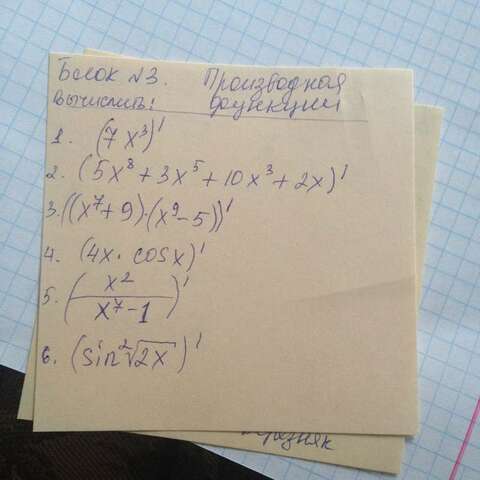 Блок №3. Производная
Вычислить: функции
1. (7x³)'
2. (5x⁸+3x⁵+10x³+2x)'
3. ((x⁷+9)·(x⁹-5))'
4. (4x·cosx)'
5. (x²/(x⁷-1))'
6. (sin²√2x)'